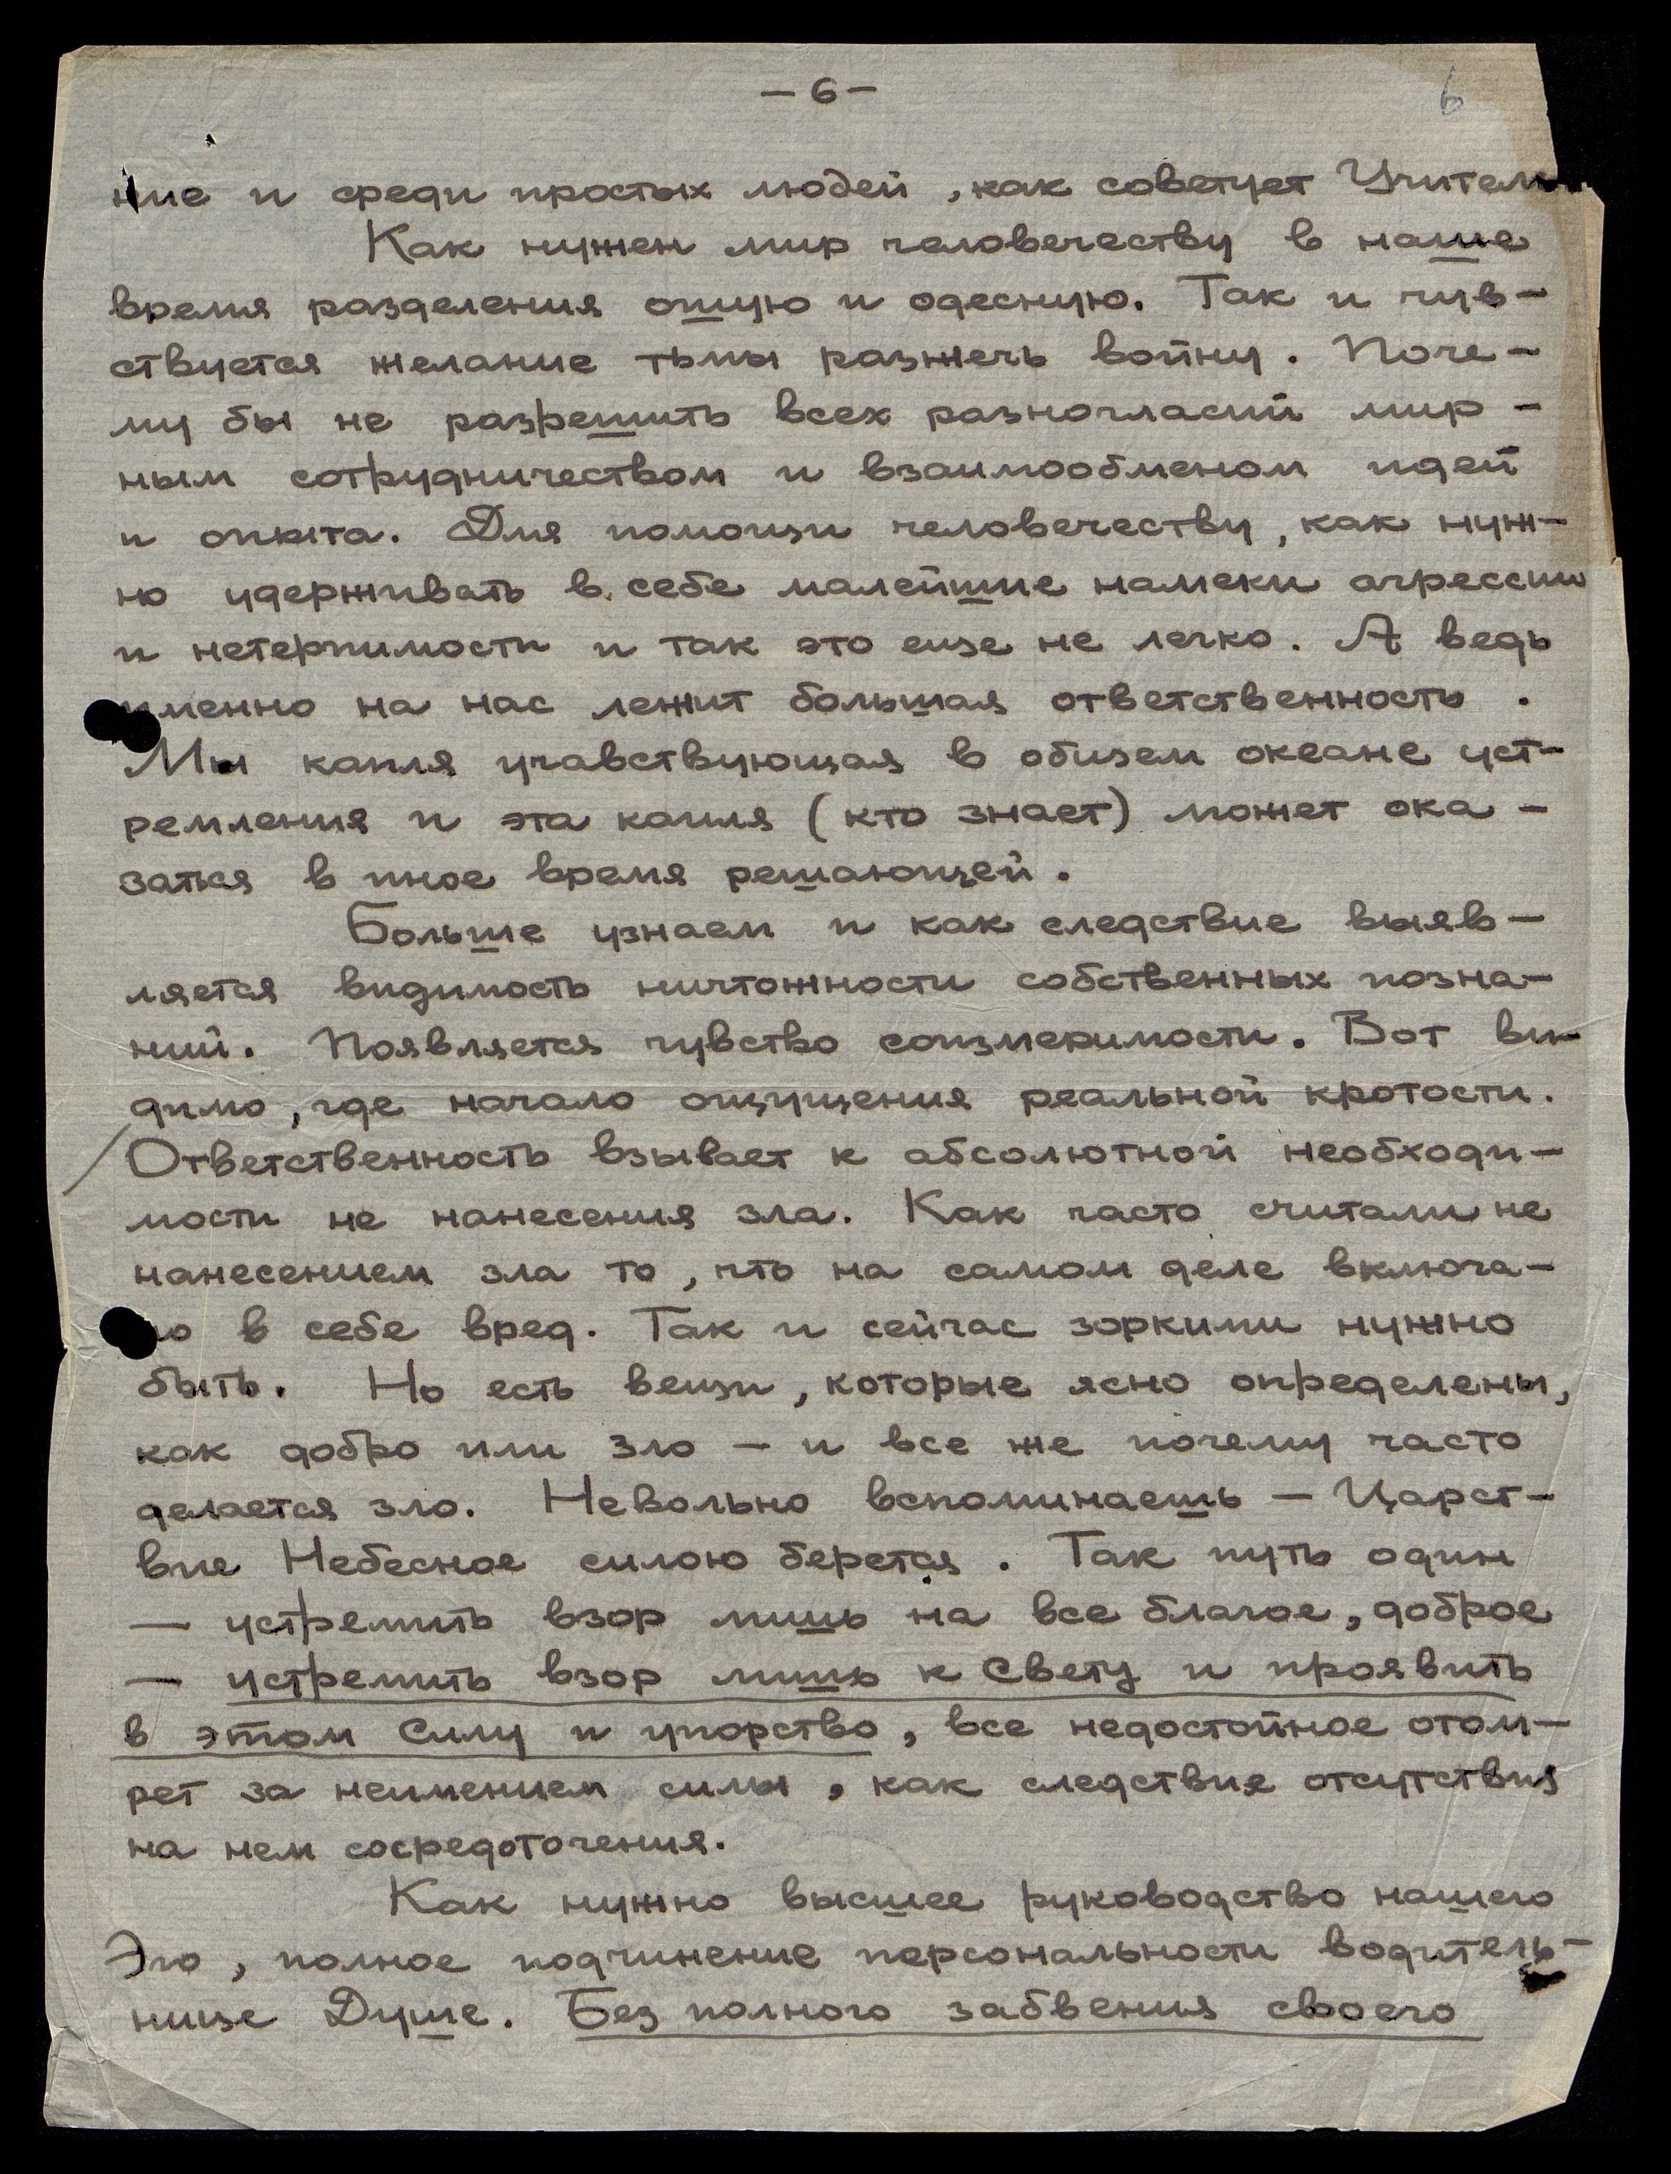 — 6 —
6
ние и среди простых людей, как советует Учитель.
Как нужен мир человечеству в наше
время разделения ошую и одесную. Так и чув-
ствуется желание тьмы разжечь войну. Поче-
му бы не разрешить всех разногласий мир-
ным сотрудничеством и взаимообменом идей
и опыта. Для помощи человечеству, как нуж-
но удерживать в себе малейшие намеки агрессии
и нетерпимости и так это еще не легко. А ведь
именно на нас лежит большая ответственность.
Мы капля учавствующая в общем океане уст-
ремления и эта капля (кто знает) может ока-
заться в иное время решающей.
Больше узнаем и как следствие выяв-
ляется видимость ничтожности собственных позна-
ний. Появляется чувство соизмеримости. Вот ви-
димо, где начало ощущения реальной кротости.
Ответственность взывает к абсолютной необходи-
мости не нанесения зла. Как часто считали не
нанесением зла то, что на самом деле включа-
ло в себе вред. Так и сейчас зоркими нужно
быть. Но есть вещи, которые ясно определены,
как добро или зло — и все же почему часто
делается зло. Невольно вспоминаешь — Царст-
вие Небесное силою берется. Так путь один
— устремить взор лишь на все благое, доброе
— устремить взор лишь к Свету и проявить
в этом силу и упорство, все недостойное отом-
рет за неимением силы, как следствие отсутствия
на нем сосредоточения.
Как нужно высшее руководство нашего
Эго, полное подчинение персональности водитель-
нице Душе. Без полного забвения своего